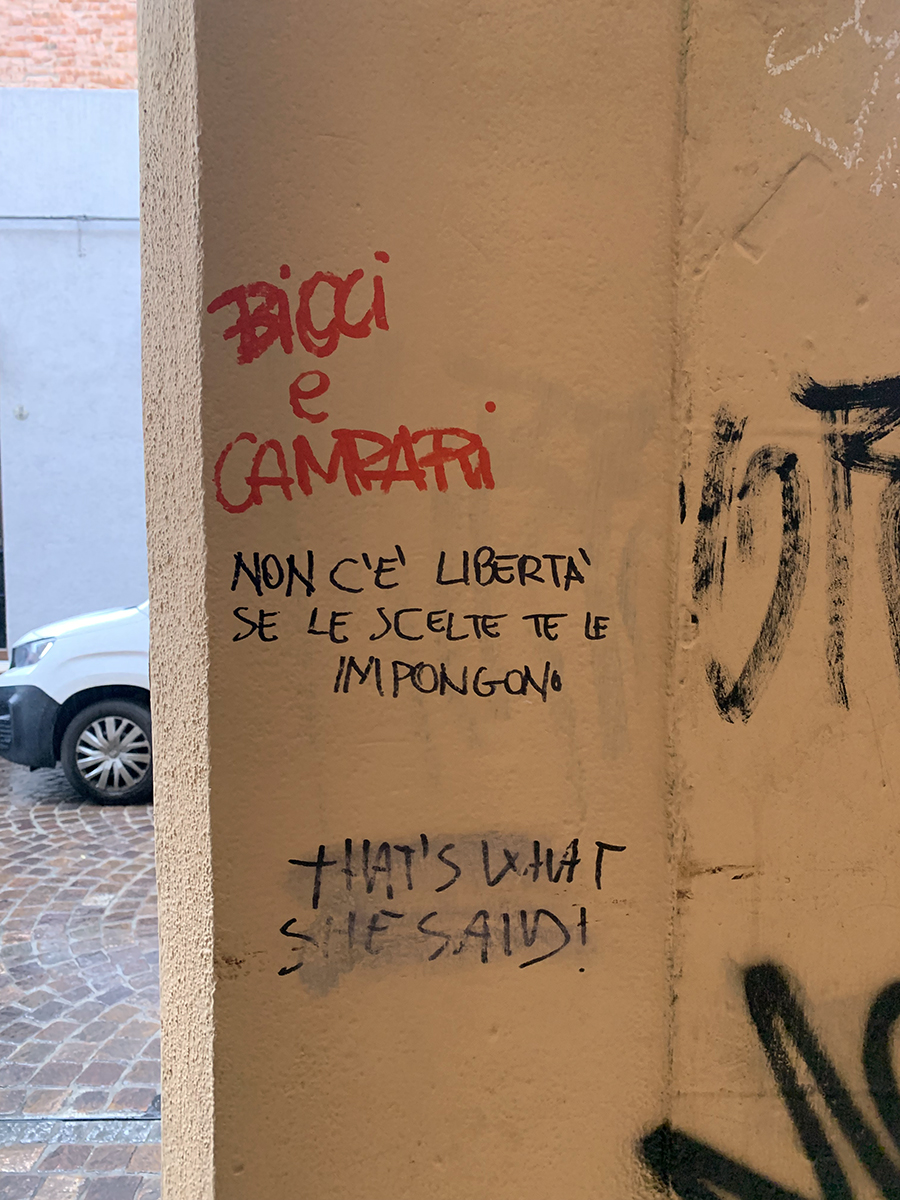 BiCCi
e
CAMPARi
NON C'E' LIBERTA'
SE LE SCELTE TE LE
IMPONGONO
THAT'S WHAT
SHE SAID!